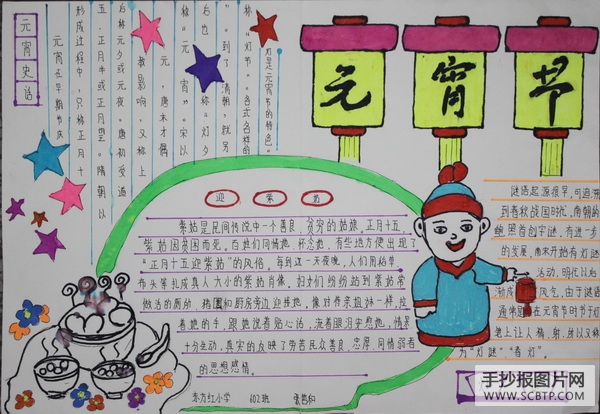 元宵节
元宵史话
元宵在早期节庆
形成过程中，只称正月十
五、正月半或正月望。隋朝以
后称元夕或元夜。唐初受道
教影响，又称上
元，唐末才偶
称“元宵”。宋以
后也称“灯夕
”。到了清朝，就另
称“灯节”。
灯是元宵节的特色。
迎紫姑
紫姑是民间传说中一个善良、贫穷的姑娘。正月十五，
紫姑因贫困而死。百姓们同情她、怀念她，有些地方便出现了
“正月十五迎紫姑”的风俗。每到这一天夜晚，人们用稻草、
布头等扎成真人大小的紫姑肖像。妇女们纷纷站到紫姑常
做活的厕所、猪圈和厨房旁边迎接她，像对待亲姐妹一样，拉
着她的手，跟她说着贴心话，流着眼泪安慰她，情景
十分生动，真实的反映了劳苦民众善良、忠厚、同情弱者
的思想感情。
东方红小学 602班
谜语起源很早，可追溯
到春秋战国时代，南朝的
鲍照首创字谜，有进一步
的发展，南宋开始有灯谜
活动，明代以后
风气，由于谜语
在元宵节时节于灯
上让人猜，所以又称
为“灯谜”“春灯”。
手抄报图片网
WWW.SCBTP.COM